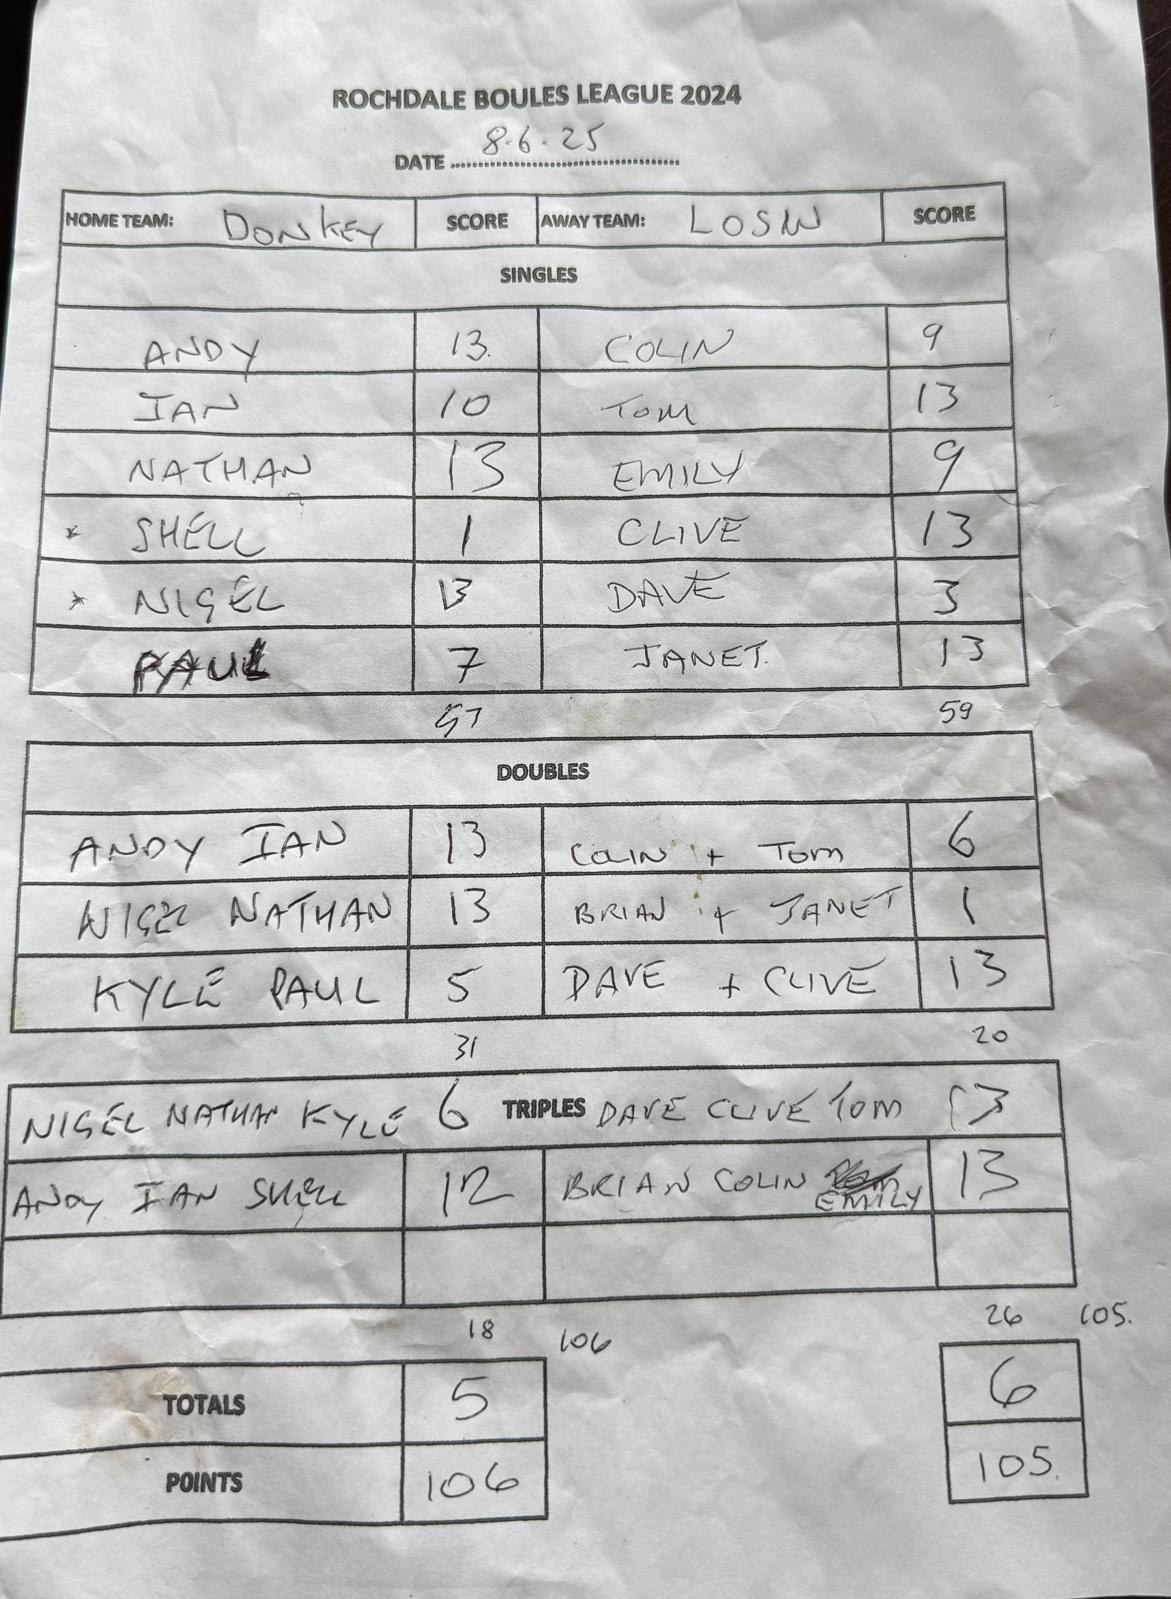 ROCHDALE BOULES LEAGUE 2024
DATE 8.6.25
HOME TEAM: DONKEY SCORE AWAY TEAM: LOSIN SCORE
SINGLES
ANDY 13. COLIN 9
IAN 10 TOM 13
NATHAN 13 EMILY 9
* SHELL 1 CLIVE 13
* NIGEL 13 DAVE 3
PAUL 7 JANET. 13
57 59
DOUBLES
ANDY IAN 13 COLIN + TOM 6
NIGEL NATHAN 13 BRIAN + JANET 1
KYLE PAUL 5 DAVE + CLIVE 13
31 20
NIGEL NATHAN KYLE 6 TRIPLES DAVE CLIVE TOM 13
ANDY IAN SHELL 12 BRIAN COLIN EMILY 13
18 106 26 105.
TOTALS 5 6
POINTS 106 105.